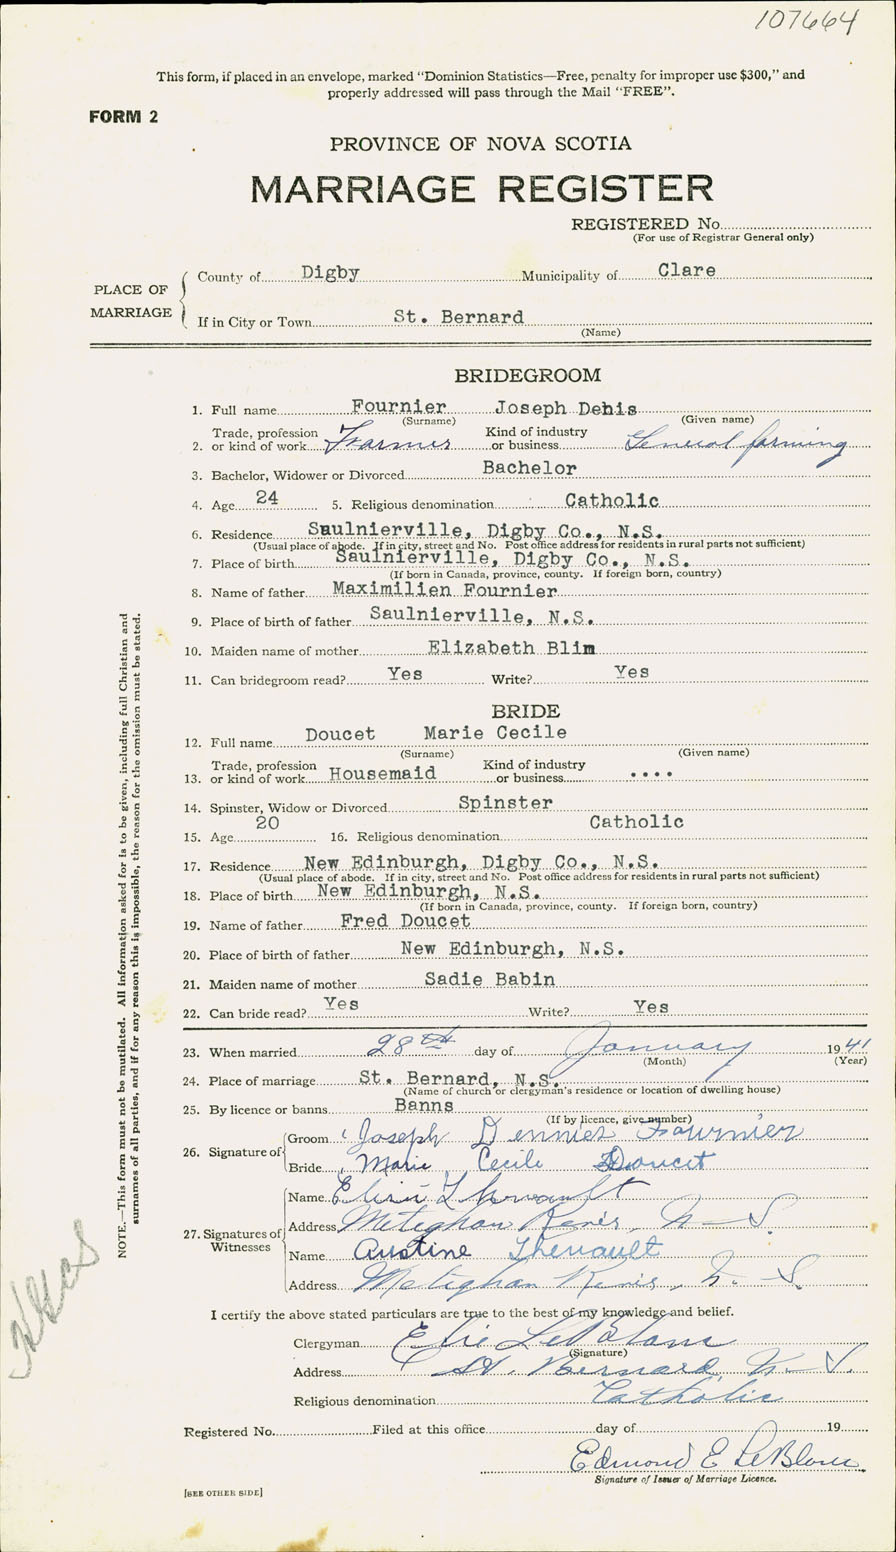 107664
This form, if placed in an envelope, marked "Dominion Statistics—Free, penalty for improper use $300," and
properly addressed will pass through the Mail "FREE".
FORM 2
PROVINCE OF NOVA SCOTIA
MARRIAGE REGISTER
REGISTERED No.
(For use of Registrar General only)
PLACE OF MARRIAGE
County of Digby Municipality of Clare
If in City or Town St. Bernard
(Name)
BRIDEGROOM
1. Full name Fournier Joseph Denis
(Surname) (Given name)
2. Trade, profession or kind of work Farmer Kind of industry or business General farming
3. Bachelor, Widower or Divorced Bachelor
4. Age 24 5. Religious denomination Catholic
6. Residence Saulnierville, Digby Co., N.S.
(Usual place of abode. If in city, street and No. Post office address for residents in rural parts not sufficient)
7. Place of birth Saulnierville, Digby Co., N.S.
(If born in Canada, province, county. If foreign born, country)
8. Name of father Maximilien Fournier
9. Place of birth of father Saulnierville, N.S.
10. Maiden name of mother Elizabeth Blim
11. Can bridegroom read? Yes Write? Yes
BRIDE
12. Full name Doucet Marie Cecile
(Surname) (Given name)
13. Trade, profession or kind of work Housemaid Kind of industry or business ....
14. Spinster, Widow or Divorced Spinster
15. Age 20 16. Religious denomination Catholic
17. Residence New Edinburgh, Digby Co., N.S.
(Usual place of abode. If in city, street and No. Post office address for residents in rural parts not sufficient)
18. Place of birth New Edinburgh, N.S.
(If born in Canada, province, county. If foreign born, country)
19. Name of father Fred Doucet
20. Place of birth of father New Edinburgh, N.S.
21. Maiden name of mother Sadie Babin
22. Can bride read? Yes Write? Yes
23. When married 28th day of January 1941
(Month) (Year)
24. Place of marriage St. Bernard, N.S.
(Name of church or clergyman's residence or location of dwelling house)
25. By licence or banns Banns
(If by licence, give number)
26. Signature of
Groom Joseph Dennies Fournier
Bride Marie Cecile Doucet
27. Signatures of Witnesses
Name Thériault
Address Meteghan River, N-S.
Name Austine Theriault
Address Meteghan River, N. S.
I certify the above stated particulars are true to the best of my knowledge and belief.
Clergyman Elie LeBlanc
(Signature)
Address St. Bernard, N-S.
Religious denomination Catholic
Registered No. Filed at this office day of 19
Edmond E LeBlanc
Signature of Issuer of Marriage Licence.
[SEE OTHER SIDE]
NOTE.—This form must not be mutilated. All information asked for is to be given, including full Christian and
surnames of all parties, and if for any reason this is impossible, the reason for the omission must be stated.